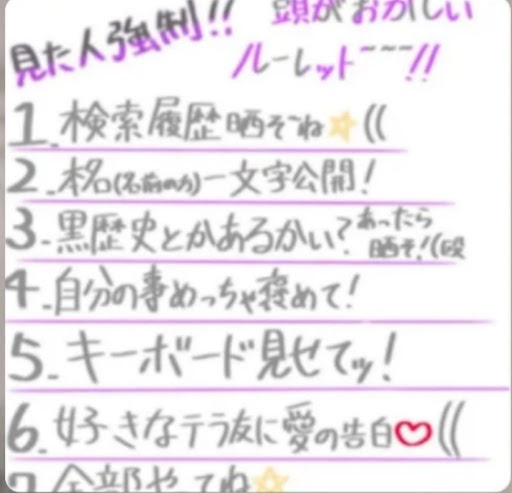 見た人強制!! 頭がおかしい
ルーレット~~~!!
1.検索履歴晒そごね☆((
2.本名(名前のみ)一文字公開!
3.黒歴史とかあるかい?あったら晒そ!((殴
4.自分の事めっちゃ褒めて!
5.キーボード見せてッ!
6.好きなテラ友に愛の告白♡((
7.全部やってね☆